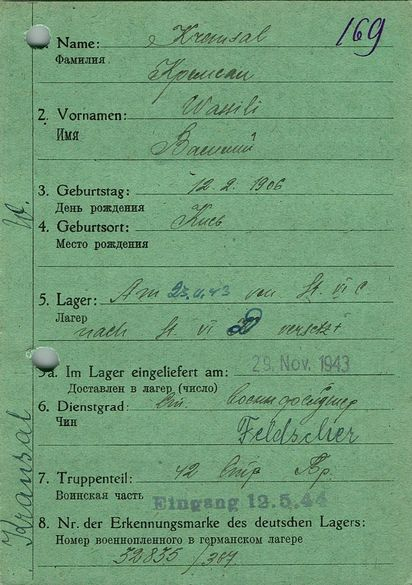 169
1. Name: Kransal
Фамилия
Кремсал
2. Vornamen: Wassili
Имя
Василий
3. Geburtstag: 12. 2. 1906
День рождения
4. Geburtsort: Киев
Место рождения
5. Lager: Am 23.11.43 von St. VI C
Лагер
nach St. VI D versetzt
5a. Im Lager eingeliefert am: 29. Nov. 1943
Доставлен в лагер (число)
6. Dienstgrad: Ст. военфельдшер
Чин
Feldscher
7. Truppenteil: 42 Стр
Воинская часть
Eingang 12.5.44
8. Nr. der Erkennungsmarke des deutschen Lagers:
Номер военнопленного в германском лагере
52835/367
Kransal W.